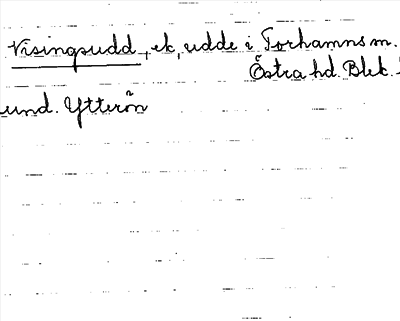 Visingsudd, ek, udde i Torhamns m.
Östra hd. Blek.
und. Ytterön